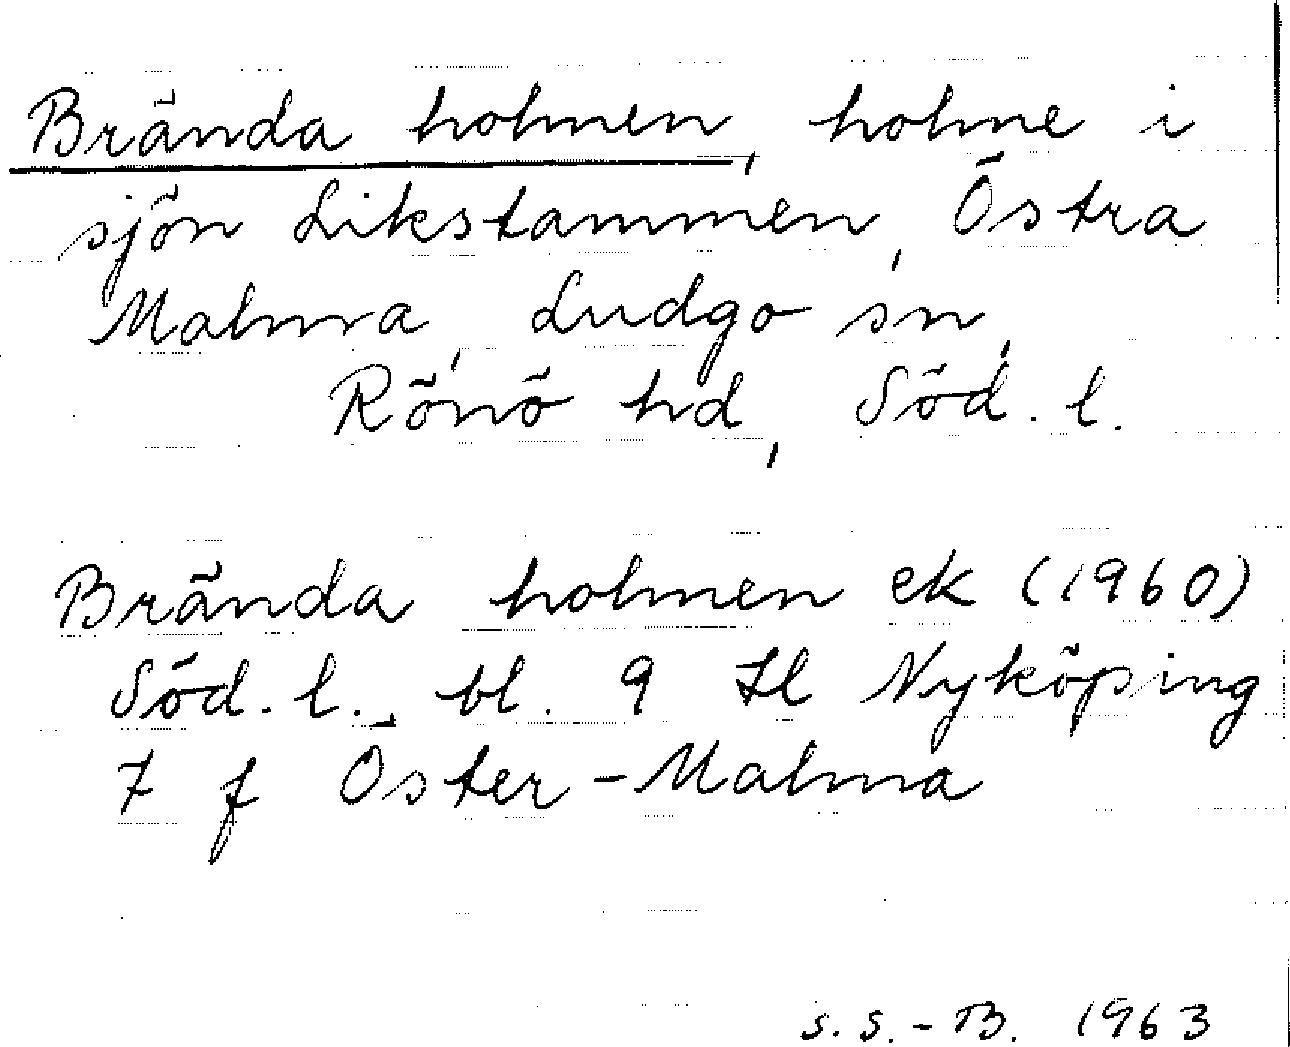 Brända holmen, holme i
sjön Likstammen, Östra
Malma, Ludgo sn,
Rönö hd, Söd. l.
Brända holmen ek (1960)
Söd. l. bl. 9 Il Nyköping
7 f Öster-Malma
S. S. - B. 1963